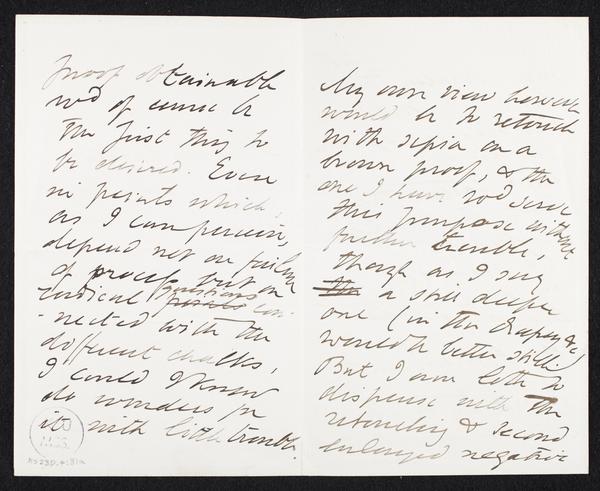 proof obtainable
wd of course be
the first thing to
be desired. Even
in points which,
as I can perceive,
depend not on failure
of process but on
radical questions con-
-nected with the
different chalks,
I could I know
do wonders for
it with little trouble.
My own view however
would be to retouch
with sepia on a
brown proof, & the
one I have wd serve
this purpose without
further trouble,
though as I say
a still deeper
one (in the drapery &c)
would be better still.
But I am loth to
dispense with the
retouching & second
enlarged negative